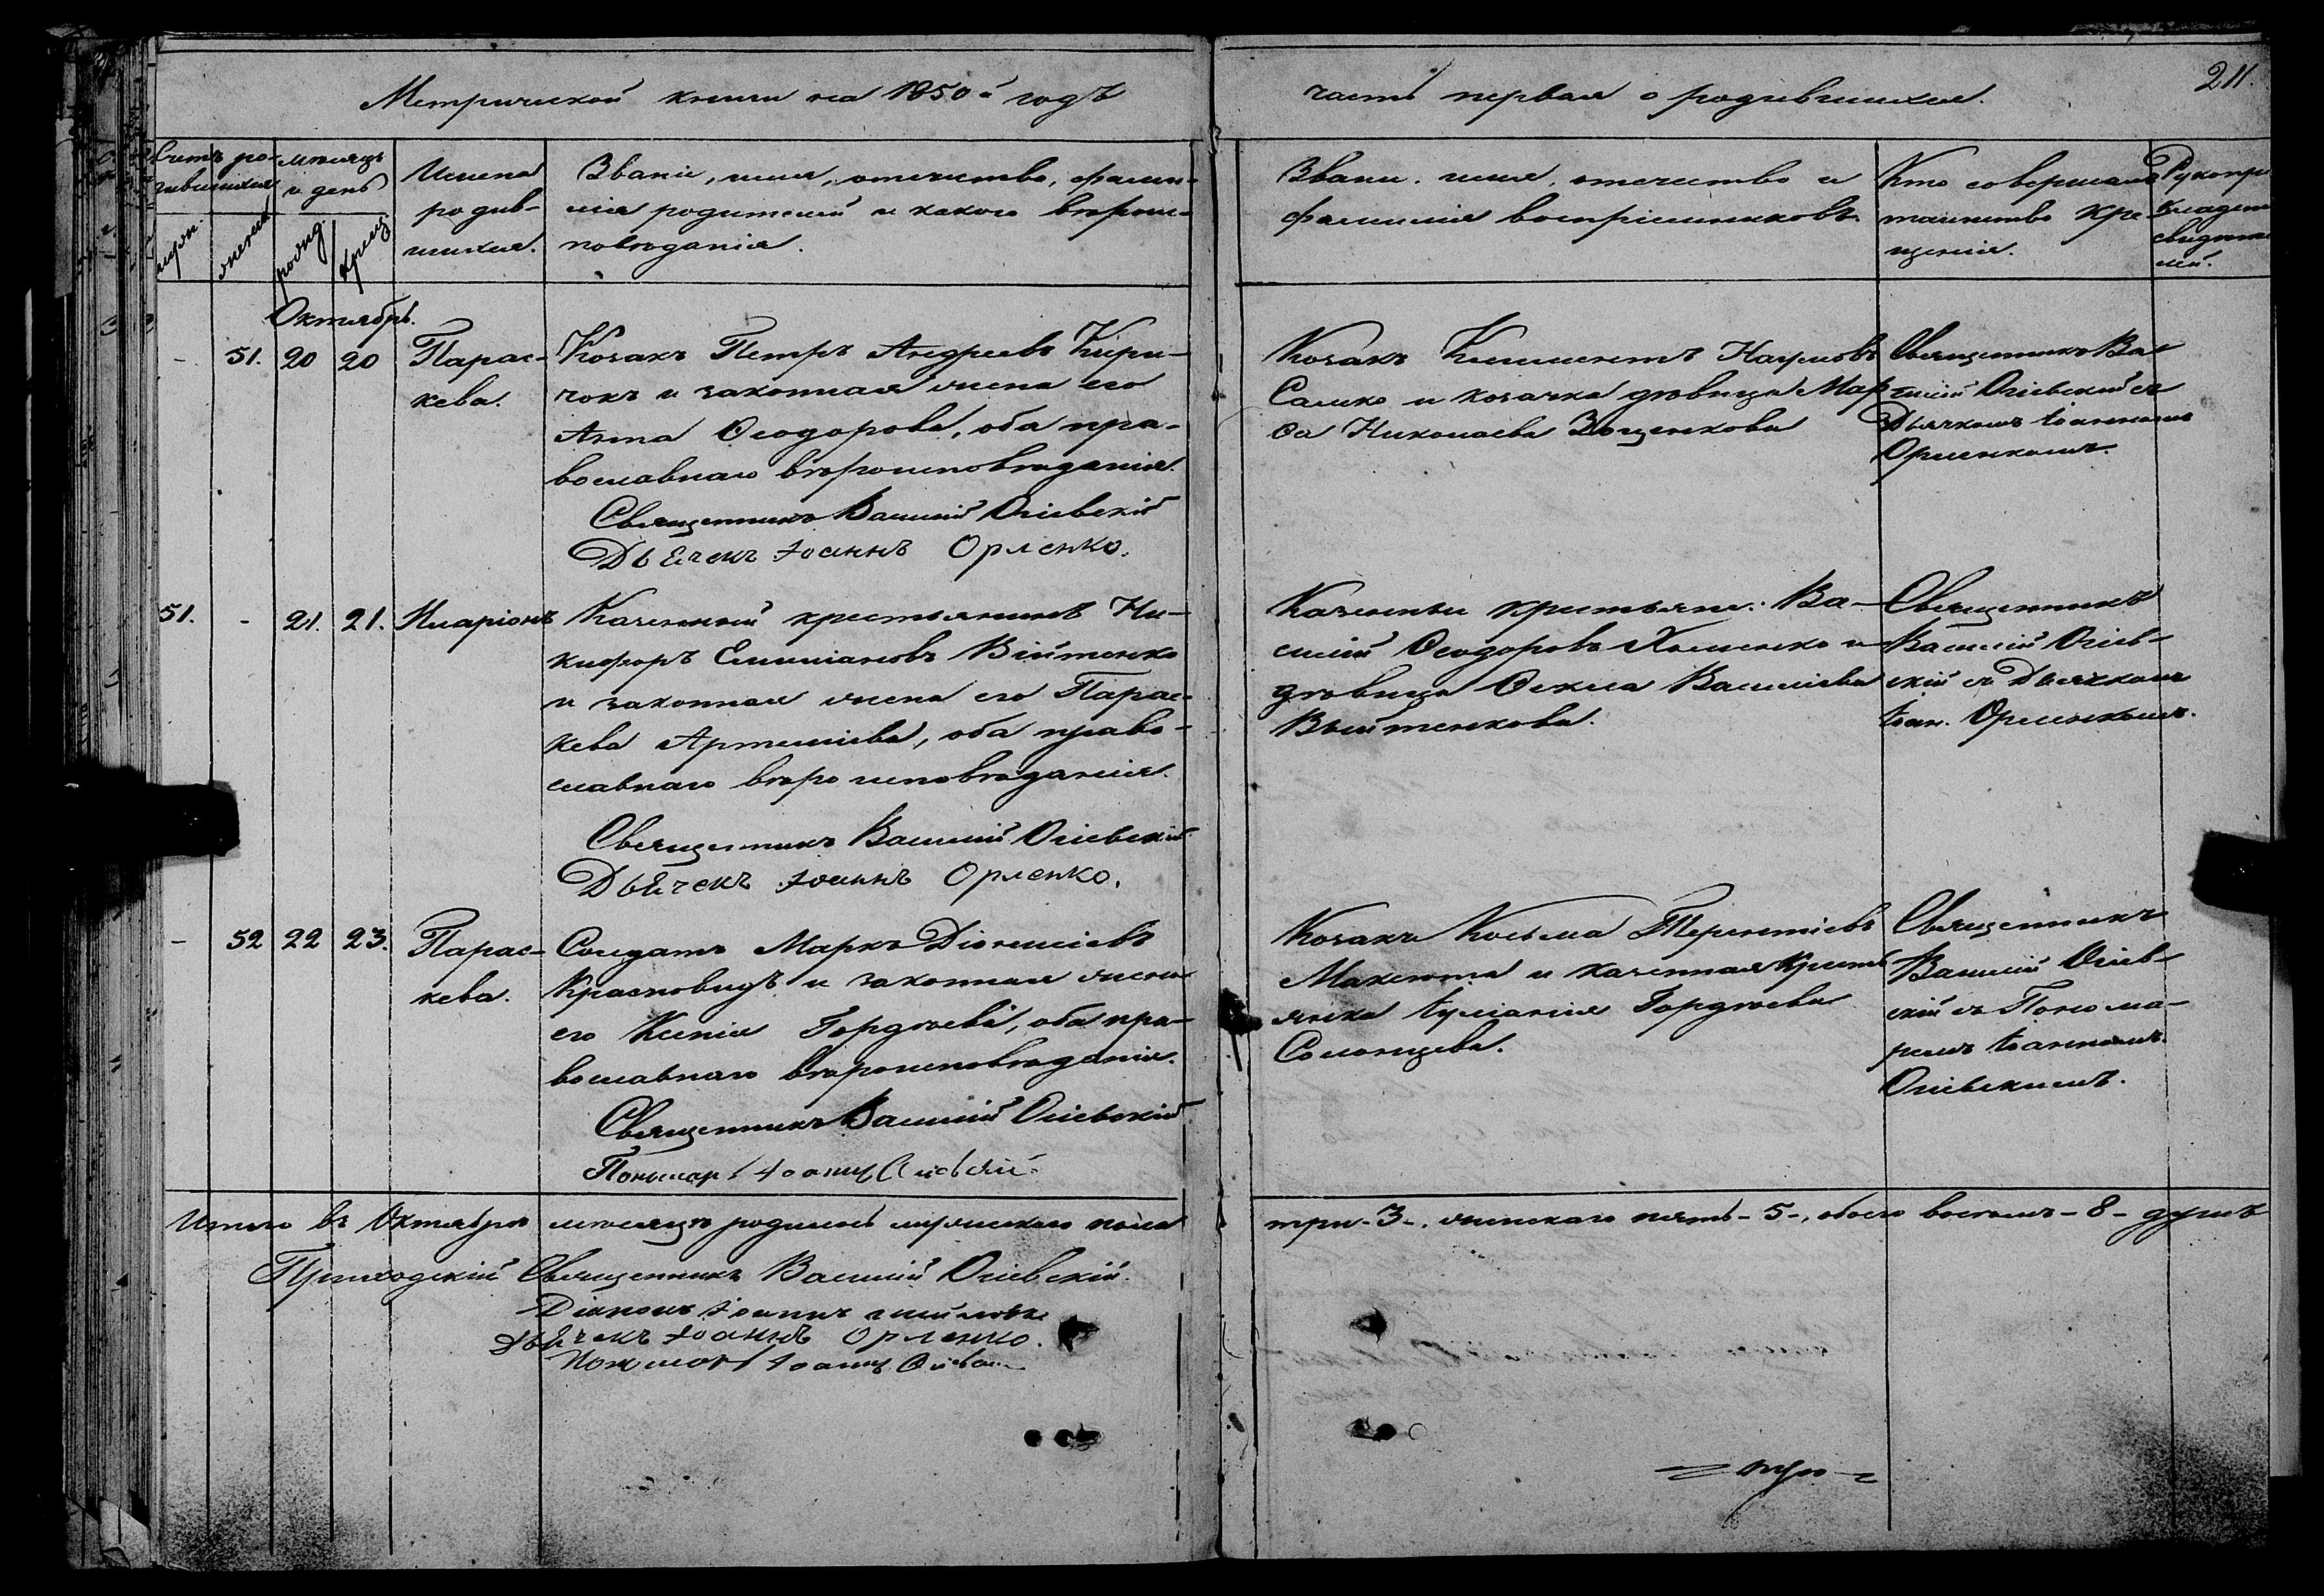 Метрической книги на 1850й годъ
часть первая о родившихся.
211.
Счетъ ро-
дившихся
мѣсяцъ
и день
Имена
родив-
шихся.
Званіе, имя, отчество, фами-
лія родителей и какого вѣроис-
повѣданія.
Званіе, имя, отчество и
фамилія воспріемниковъ
Кто совершалъ
таинство кре
щенія.
Рукопри
кладст
свидѣте
лей.
женска
рожд.
крещ.
Октябрь.
-
51.
20
20
Парас-
кева.
Козакъ Петръ Андреевъ Кири-
чокъ и законная жена его
Анна Ѳеодорова, оба пра-
вославнаго вѣроисповѣданія.
Священникъ Василій Огіевскій
Дьячекъ Іоаннъ Орленко.
Козакъ Климентъ Наумовъ
Салко и козачка дѣвица Мар
ѳа Николаева Зощенкова
Священникъ Ва
силій Огіевскій съ
Дьячкомъ Іоанномъ
Орленкомъ.
51.
-
21.
21.
Иларіонъ
Казенный крестьянинъ Ни-
кифоръ Емиліановъ Війтенко
и законная жена его Парас-
кева Артеміева, оба право-
славнаго вѣроисповѣданія.
Священникъ Василій Огіевскій
Дьячекъ Іоаннъ Орленко.
Казенные крестьяне: Ва-
силій Ѳеодоровъ Хоменко и
дѣвица Ѳекла Василіева
Выйтенкова.
Священникъ
Василій Огіев-
скій съ Дьячкомъ
Іоан. Орленкомъ.
-
52
22
23.
Парас-
кева.
Солдатъ Маркъ Діонисіевъ
Красновидъ и законная жена
его Ксенія Гордѣева, оба пра-
вославнаго вѣроисповѣданія.
Священникъ Василій Огіевскій
Пономарь Іоаннъ Огіевскій
Козакъ Косьма Терентіевъ
Макоета и казенная крестъ
янка Іуліанія Гордѣева
Солонцева.
Священникъ
Василій Огіев-
скій съ Понома-
ремъ Іоанномъ
Огіевскимъ.
Итого въ Октябрѣ мѣсяцѣ родилось мужескаго пола
три-3-, женскаго пять-5-, обоего восемь-8-душъ
Приходскій Священникъ Василій Огіевскій.
Діаконъ Іоаннъ
Дьячекъ Іоаннъ Орленко.
Пономарь Іоаннъ Огіевск